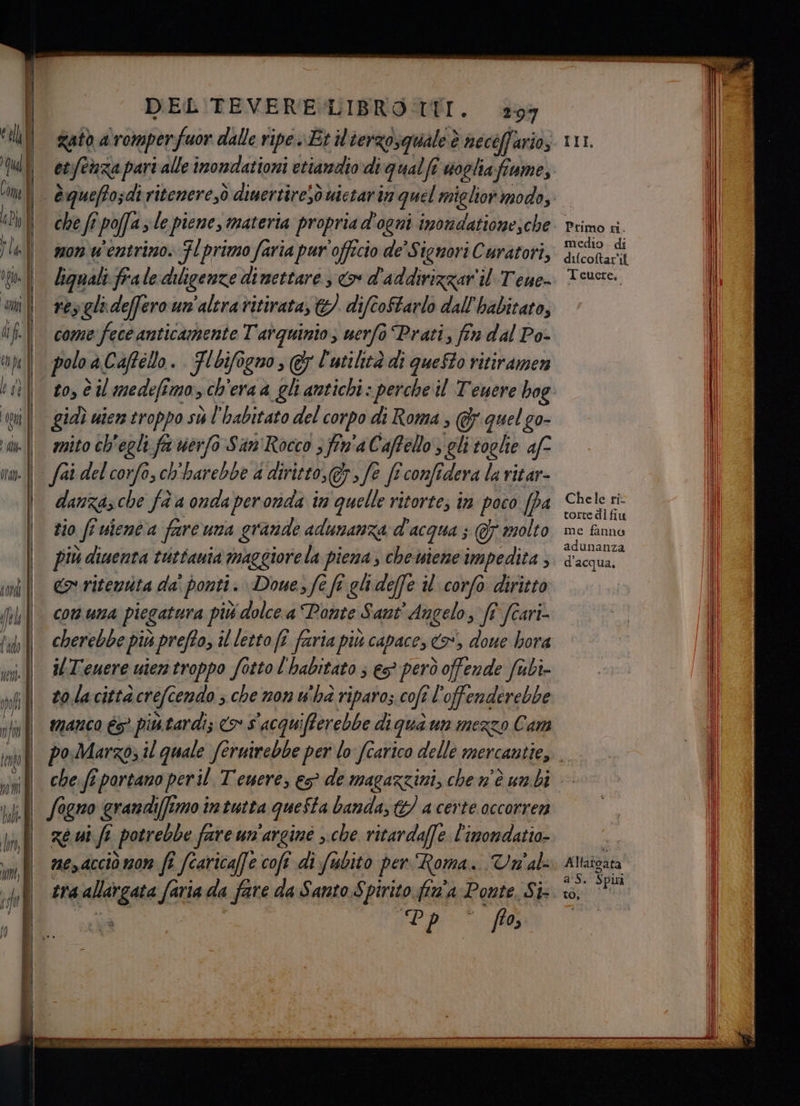 DEL TEVERE LIBRO III. 297
zato a romper fuor dalle ripe. Et il terzo, quale è necessario, III.
et senza pari alle inondationi etiandio di qual si uoglia fiume,
è questo; di ritenere, ò diuertire, ò uietar in quel miglior modo,
che si possa, le piene, materia propria d'ogni inondatione, che Primo ri-
non u'entrino. Il primo saria pur'officio de' Signori Curatori, medio di
liquali fra le diligenze di nettare, & d'addirizzar'il Teue- discostar'il
re, gli dessero un'altra ritirata, & discostarlo dall'habitato, Teuere.
come fece anticamente Tarquinio, uerso Prati, fin dal Po-
polo a Castello. Il bisogno, & l'utilità di questo ritiramen
to, è il medesimo, ch'era a gli antichi: perche il Teuere hog
gidì uien troppo sù l'habitato del corpo di Roma, & quel go-
mito ch'egli fa uerso San Rocco, fin'a Castello, gli toglie as-
sai del corso, ch'harebbe a diritto, &, se si considera la ritar-
danza, che fà a onda per onda in quelle ritorte, in poco spa Che le ri-
tio si uiene a fare una grande adunanza d'acqua; & molto torte dl fiu
più diuenta tuttauia maggiore la piena, che uiene impedita, me fanno
& ritenuta da' ponti. Doue, se si gli desse il corso diritto adunanza
con una piegatura più dolce a Ponte Sant'Angelo, si scari- d'acqua.
cherebbe più presto, il letto si saria più capace, &, doue hora
il Teuere uien troppo sotto l'habitato; & però offende subi-
to la città crescendo, che non u'hà riparo; cosi l'offenderebbe
manco & più tardi; & s'acquisterebbe di quà un mezzo Cam
po Marzo, il quale seruirebbe per lo scarico delle mercantie,
che si portano per il Teuere, & de magazzini, che n'è un bi
sogno grandissimo in tutta questa banda, & a certe occorren
ze ui si potrebbe fare un'argine, che ritardasse l'inondatio-
ne, acciò non si scaricasse cosi di subito per Roma. Un'al- Allargata
tra allargata saria da fare da Santo Spirito fin'a Ponte Si- a S. Spiri
Pp sto, to.